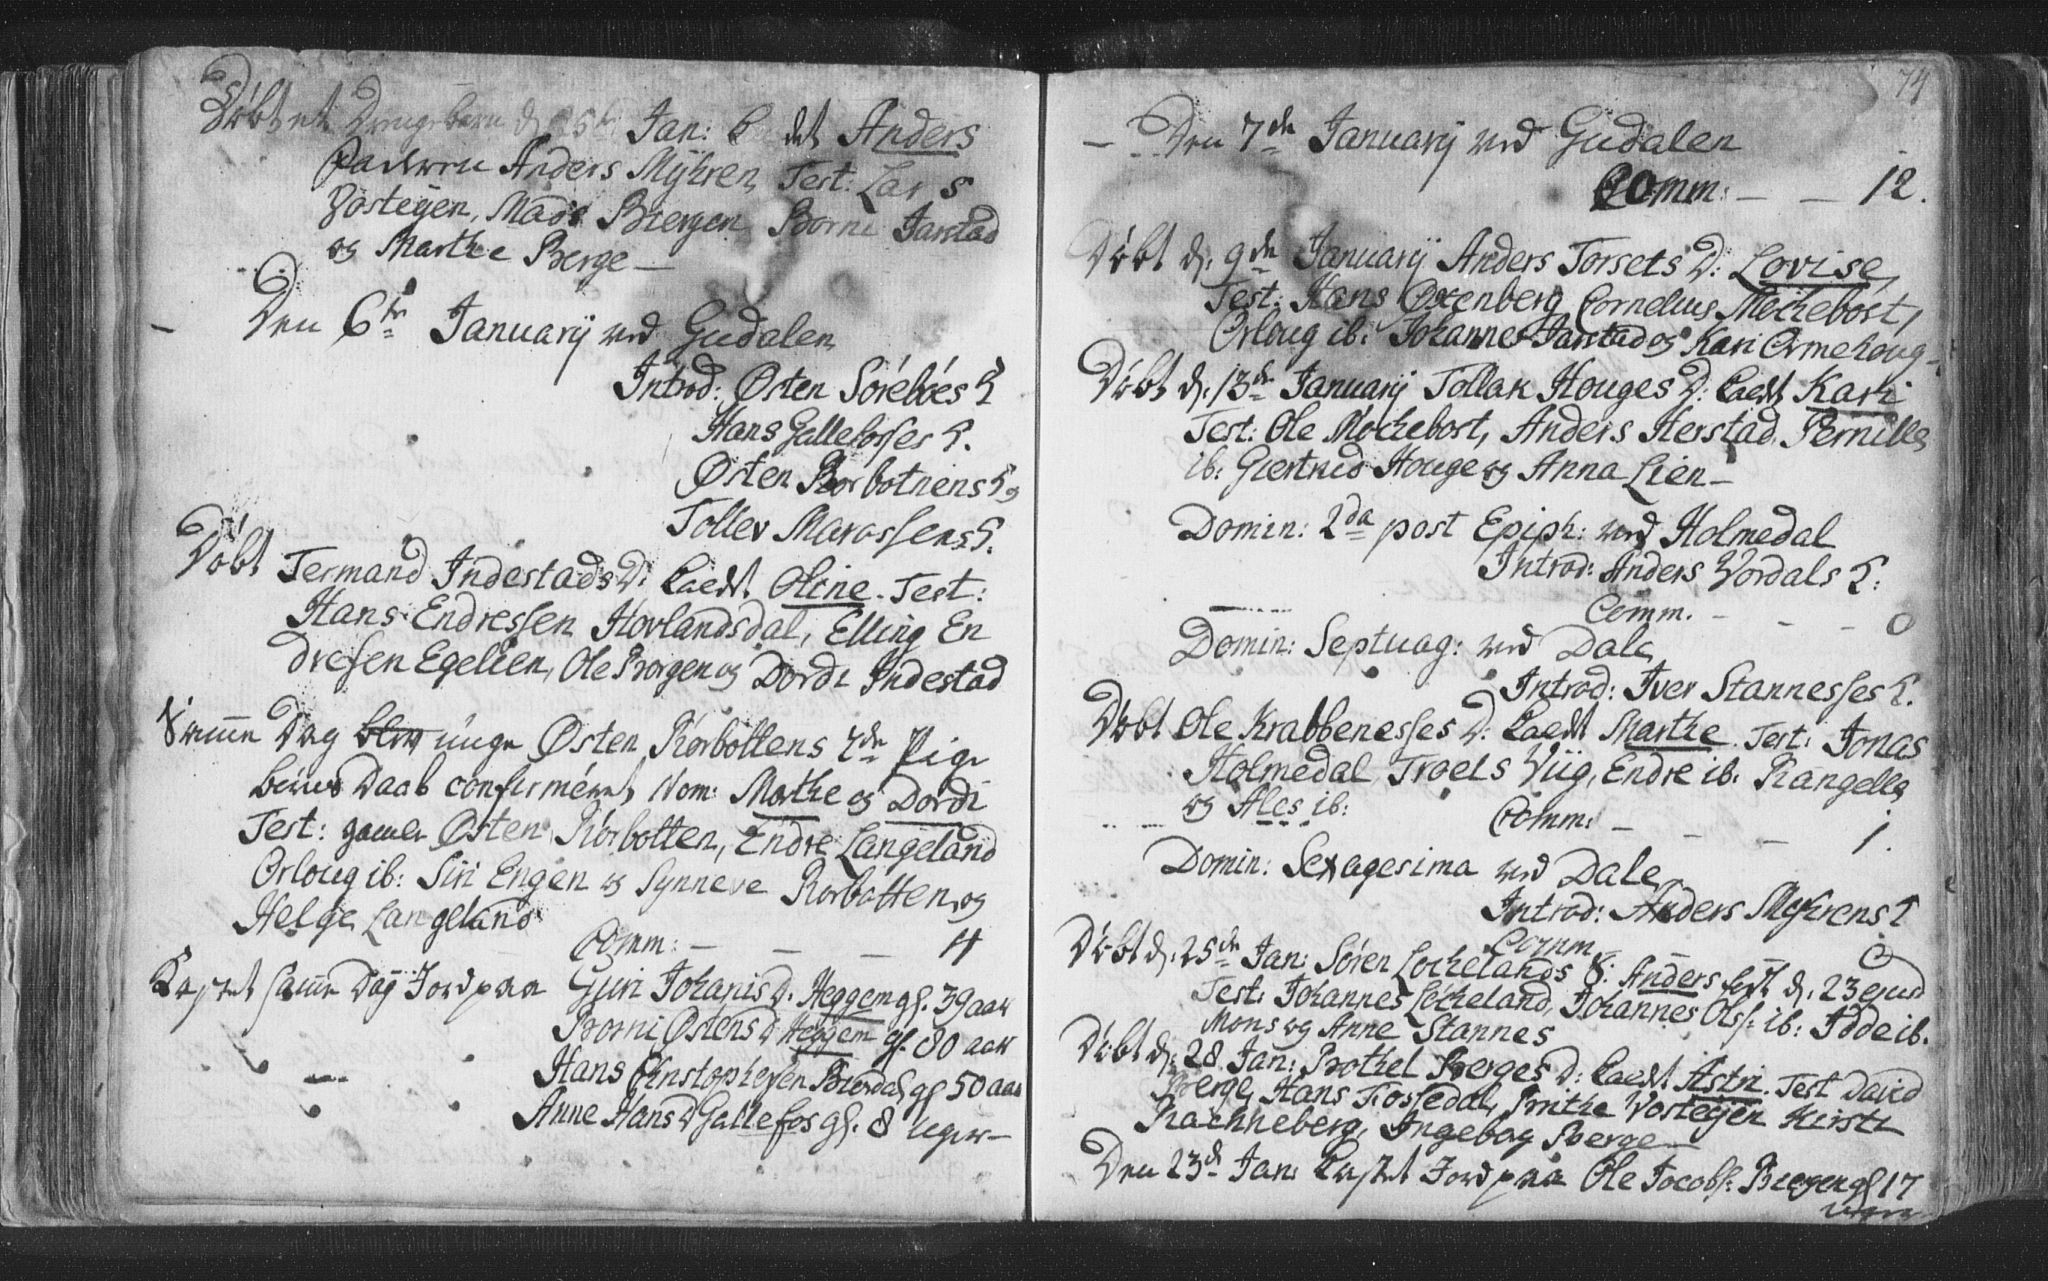 Døbt et Drengebarn d. 25 Jan: Kaldet Anders
Faderen Anders Mÿhren, Test: Lars
Vosteyen, Mads Biergen Borni Jarstad
og Marthe Berge —
Den 6te Januarij ved Gudalen
Introd: Østen Sörebóes K
Hans Gallefosses K.
Østen Rørbotnens K og
Tollev Marassens K.
Døbt Termand Indestads D: kaldt Oline. Test:
Hans Endressen Hovlandsdal, Elling En
dresen Egelien, Ole Borgen og Dordi Indestad
Samme Dag blev unge Østen Rörbottens 2de Pige
børns Daab confirmeret, Nom: Marthe og Dordi
Test: gamle Østen Rörbotten, Endre Langeland
Orloug ib: Siri Engen og Synneve Rörbotten og
Helge Langeland
Comm: — — — 4
Kastet samme Dag Jord paa Guri Johanis D. Heggem gl. 39 aar
Borni Østens D Heggem gl. 80 aar
Hans Christophersen gl 50 aar
Anne Hans D Gallefos gl. 8 uger —
74
— Den 7de Januarij ved Gudalen
Comm: — — 12.
Døbt d. 9de Januarij Anders Torsets D: Lovise,
Test: Hans Østenberg Cornelius Möchebost,
Orloug ib: Johannes Jarstad og Kari Ormehoug —
Døbt d. 13de Januarij Tollak Houges D: kaldt Kari
Test: Ole Möchebost, Anders Herstad, Pernille
ib: Giertrud Houge og Anna Lien —
Domin: 2da post Epiph: ved Holmedal
Introd: Anders Vordals K:
Comm. — — — 0
Domin: Septuag: ved Dale
Introd: Iver Stannesses K.
Døbt Ole Krabbenesses D: kaldt Marthe. Test: Jonas
Holmedal, Troels Viig, Endre ib: Rangella
og Ales ib:
Comm: — — — 1.
Domin: Sexagesima ved Dale,
Introd: Anders Mÿhrens K
Comm — — 0
Døbt d. 25de Jan: Søren Lochelands S: Anders født d. 23 ejusd
Test: Johannes Löcheland, Johannes Olss: ib: Idde ib.
Mons og Anne Stannes
Døbt d: 28 Jan: Bothel Berges D: kaldt Astri. Test David
Berge, Hans Fossedal, Brithe Vosteyen Kirsti
Rachneberg, Ingebog Berge —
Den 23d Jan: Kastet Jord paa Ole Jocobs: gl 17
uger